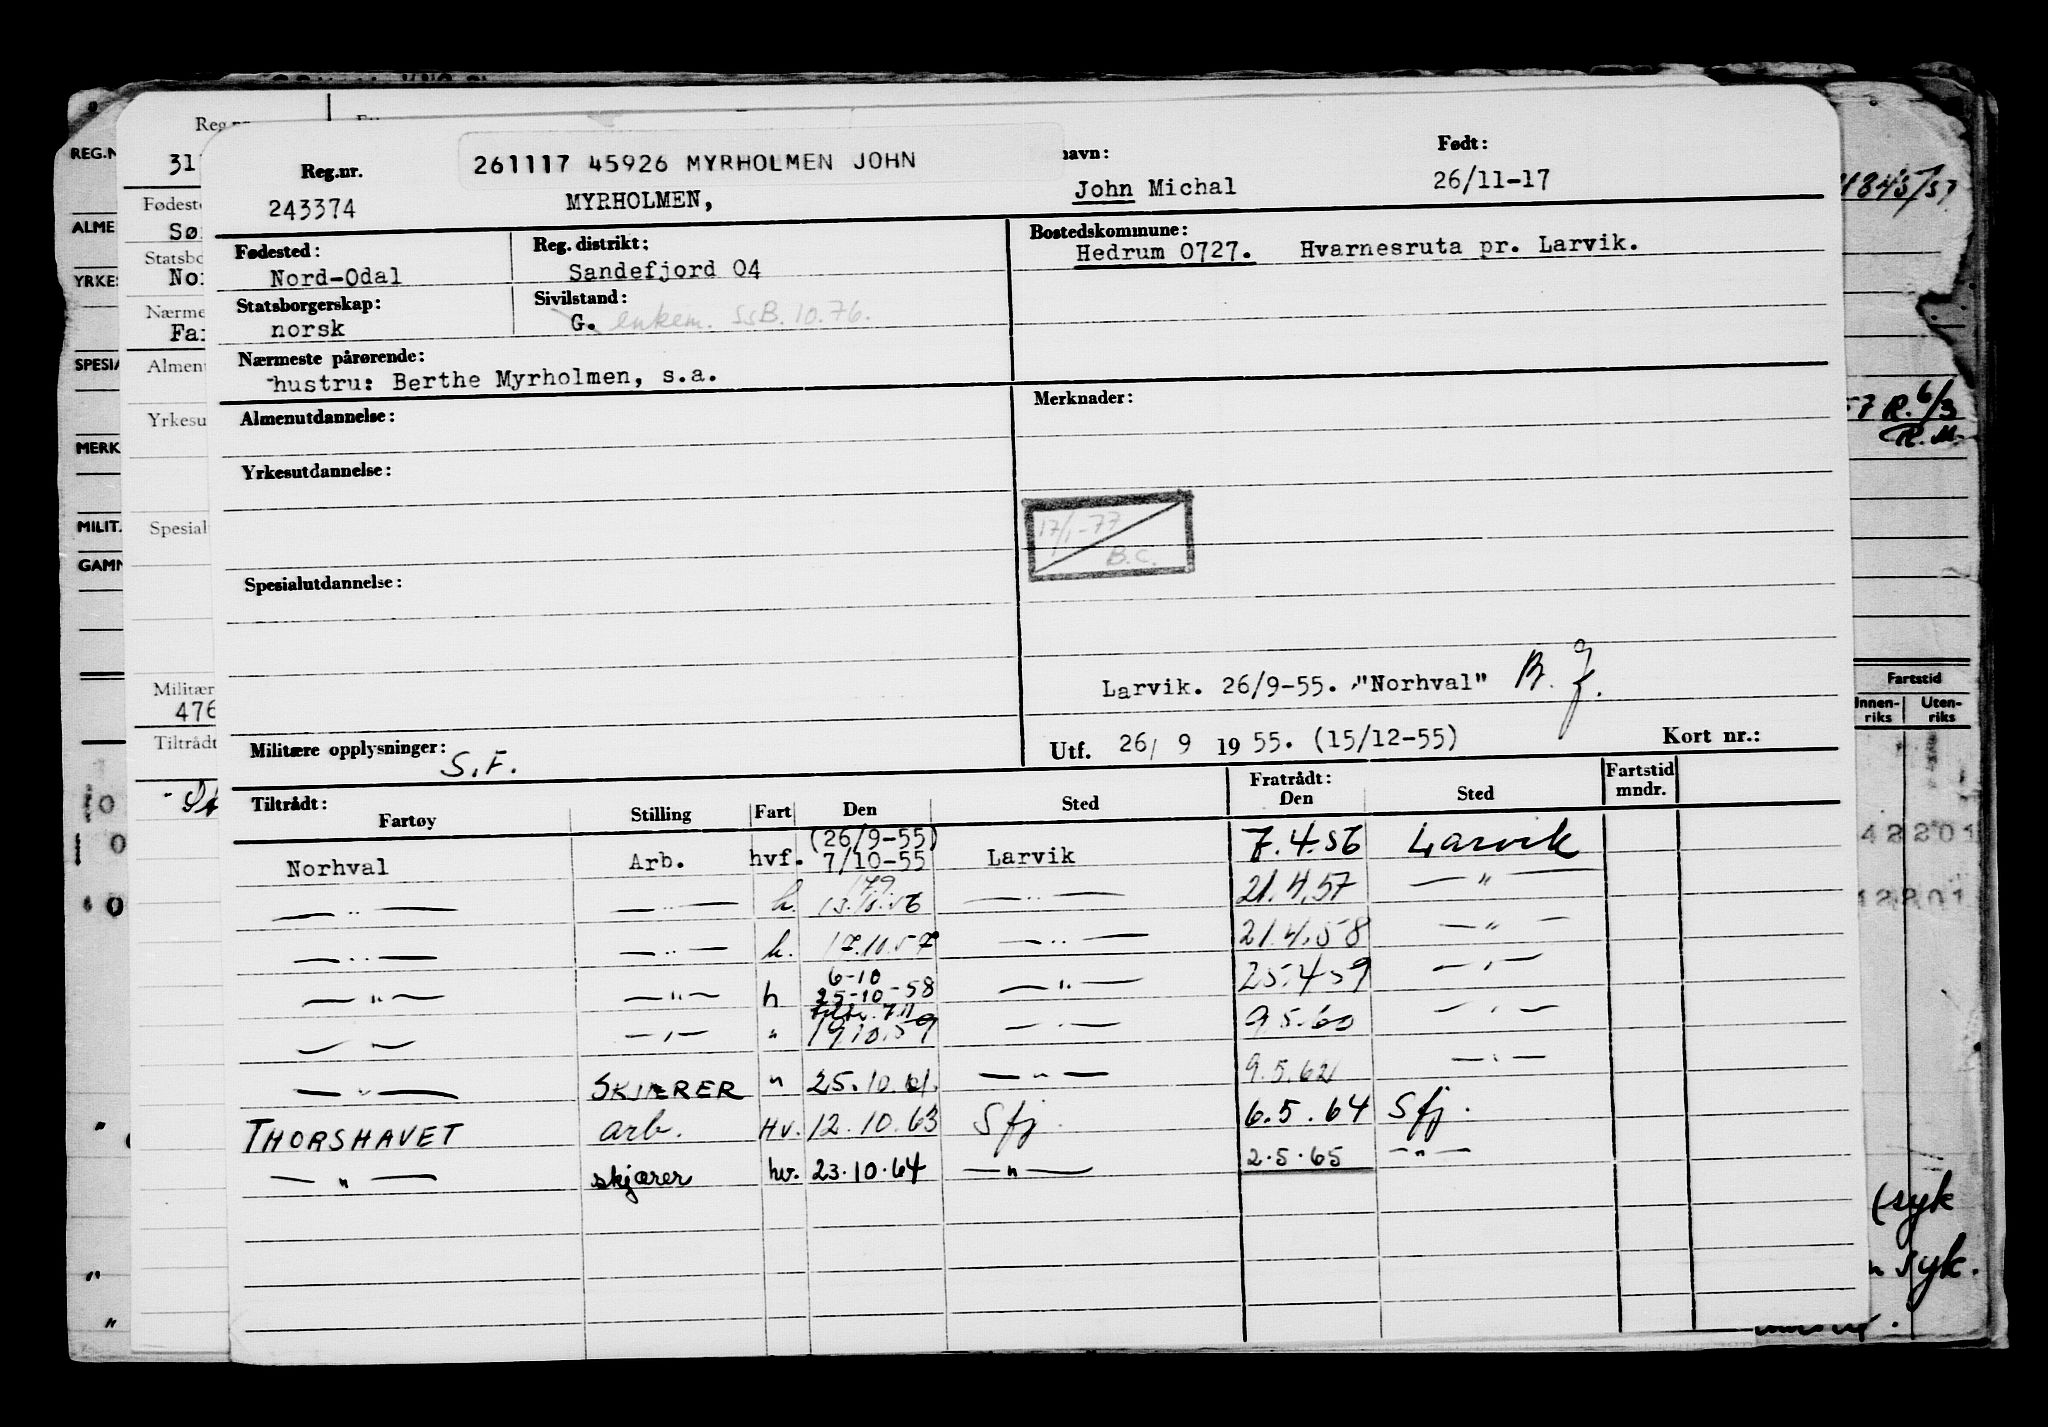 Reg.nr.
261117 45926 MYRHOLMEN JOHN
navn:
Født:
243374
MYRHOLMEN,
John Michal
26/11-17
Fødested:
Reg. distrikt:
Bostedskommune:
Nord-Odal
Sandefjord 04
Hedrum 0727. Hvarnesruta pr. Larvik.
Statsborgerskap:
Sivilstand:
norsk
G. enkem. SSB. 10.76.
Nærmeste pårørende:
hustru: Berthe Myrholmen, s.a.
Almenutdannelse:
Merknader:
Yrkesutdannelse:
17/1-77
B.C.
Spesialutdannelse:
Larvik. 26/9-55. "Norhval"
Militære opplysninger: S.F.
Utf. 26/ 9 1955. (15/12-55)
Kort nr.:
Tiltrådt:
Fartøy Stilling Fart Den Sted
Fratrådt:
Den Sted
Fartstid
mndr.
(26/9-55)
Norhval Arb. hvf. 7/10-55 Larvik 7.4.56 Larvik
— " — — " — h. — " — 21.4.57 — " —
— " — — " — h. 17.10.57 — " — 21.4.58 — " —
6-10
— " — — " — h 25-10-58 — " — 25.4 59 — " —
— — — " — " 19.10.59 — " — 9.5.60 — " —
— " — SKJÆRER " 25.10.61. — " — 9.5.62 — " —
THORSHAVET arb. Hv. 12.10.63 Sfj. 6.5.64 Sfj.
— " — skjærer hv. 23.10.64 — " — 2.5.65 — " —
REG.N
ALME
YRKES
SPESIA
MERK
MILIT.
GAMN
Reg.nr
31
Fødeste
Sø
Statsbo
No
Nærme
Fa
Almen
Yrkesu
Spesial
Militær
476
Tiltrådt
57 R. 6/3
R. M.
Fartstid
Innen-
riks
Uten-
riks
42201
(syk
syk.